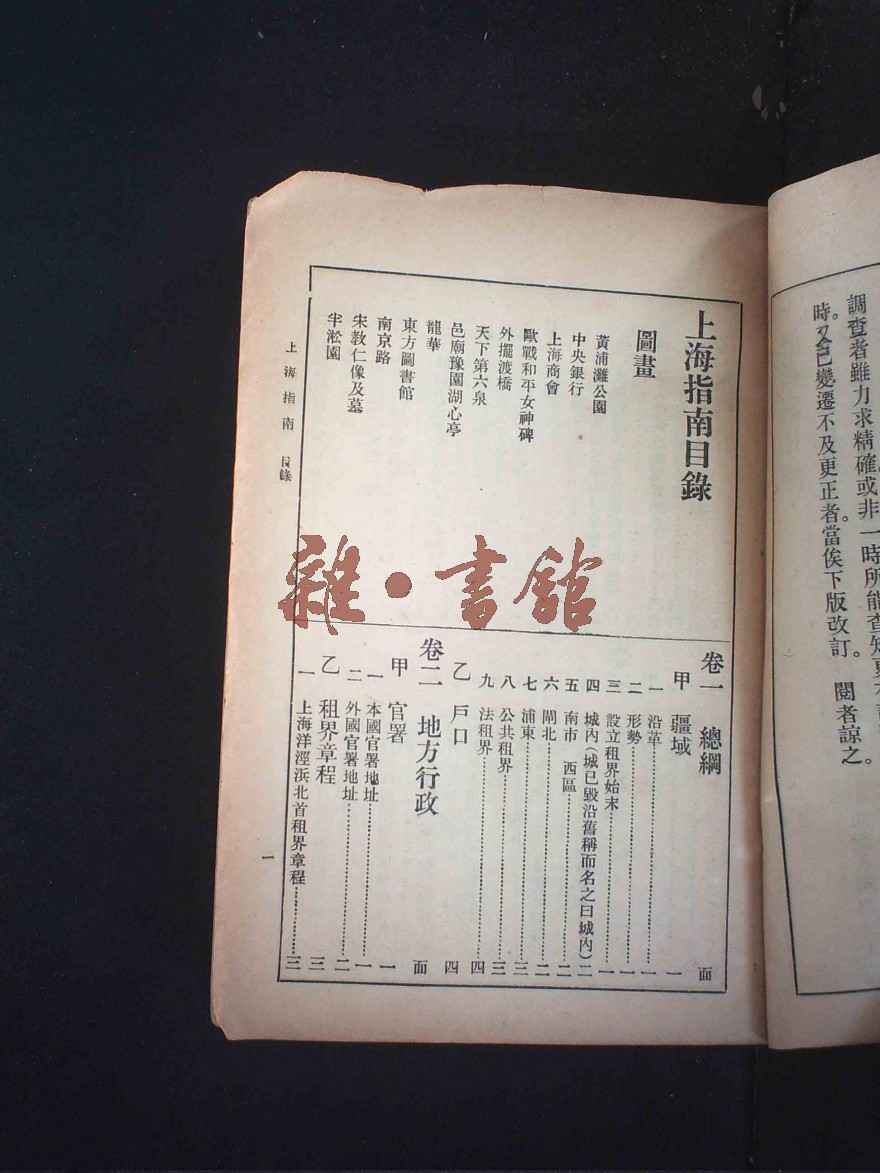 調查者雖力求精確或非一時所能查知更
時。又已變遷不及更正者。當俟下版改訂。閱者諒之。
上海指南目錄
圖畫
黃浦灘公園
中央銀行
上海商會
歐戰和平女神碑
外擺渡橋
天下第六泉
邑廟豫園湖心亭
龍華
東方圖書館
南京路
宋教仁像及墓
半淞園
卷一 總綱 面
甲 疆域 一
一 沿革 一
二 形勢 一
三 設立租界始末 一
四 城內(城已毀沿舊稱而名之曰城內) 二
五 南市 西區 二
六 閘北 二
七 浦東 三
八 公共租界 三
九 法租界 四
乙 戶口 四
卷二 地方行政 面
甲 官署 一
一 本國官署地址 一
二 外國官署地址 二
乙 租界章程 三
一 上海洋涇浜北首租界章程 三
上海指南 目錄
一
雜·書館